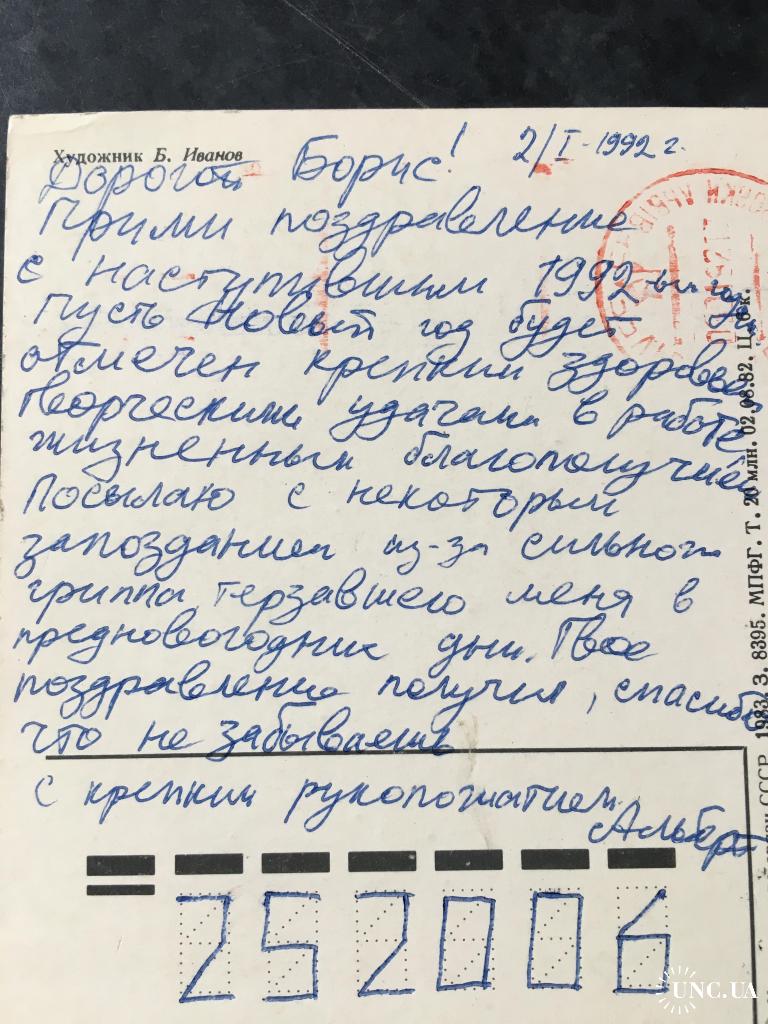 Художник Б. Иванов
2/I-1992 г.
Дорогой Борис!
Прими поздравление
с наступившим 1992-ым годом
Пусть Новый год будет
отмечен крепким здоровьем
творческими удачами в работе
жизненным благополучием
Посылаю с некоторым
запозданием из-за сильного
гриппа, терзавшего меня в
предновогодние дни. Твое
поздравление получил, спасибо
что не забываешь
С крепким рукопожатием
Альберт
252006
1983. З. 8395. МПФГ. Т. 20 млн. 02.08.82. Ц. 6 к.
СССР
UNC.UA